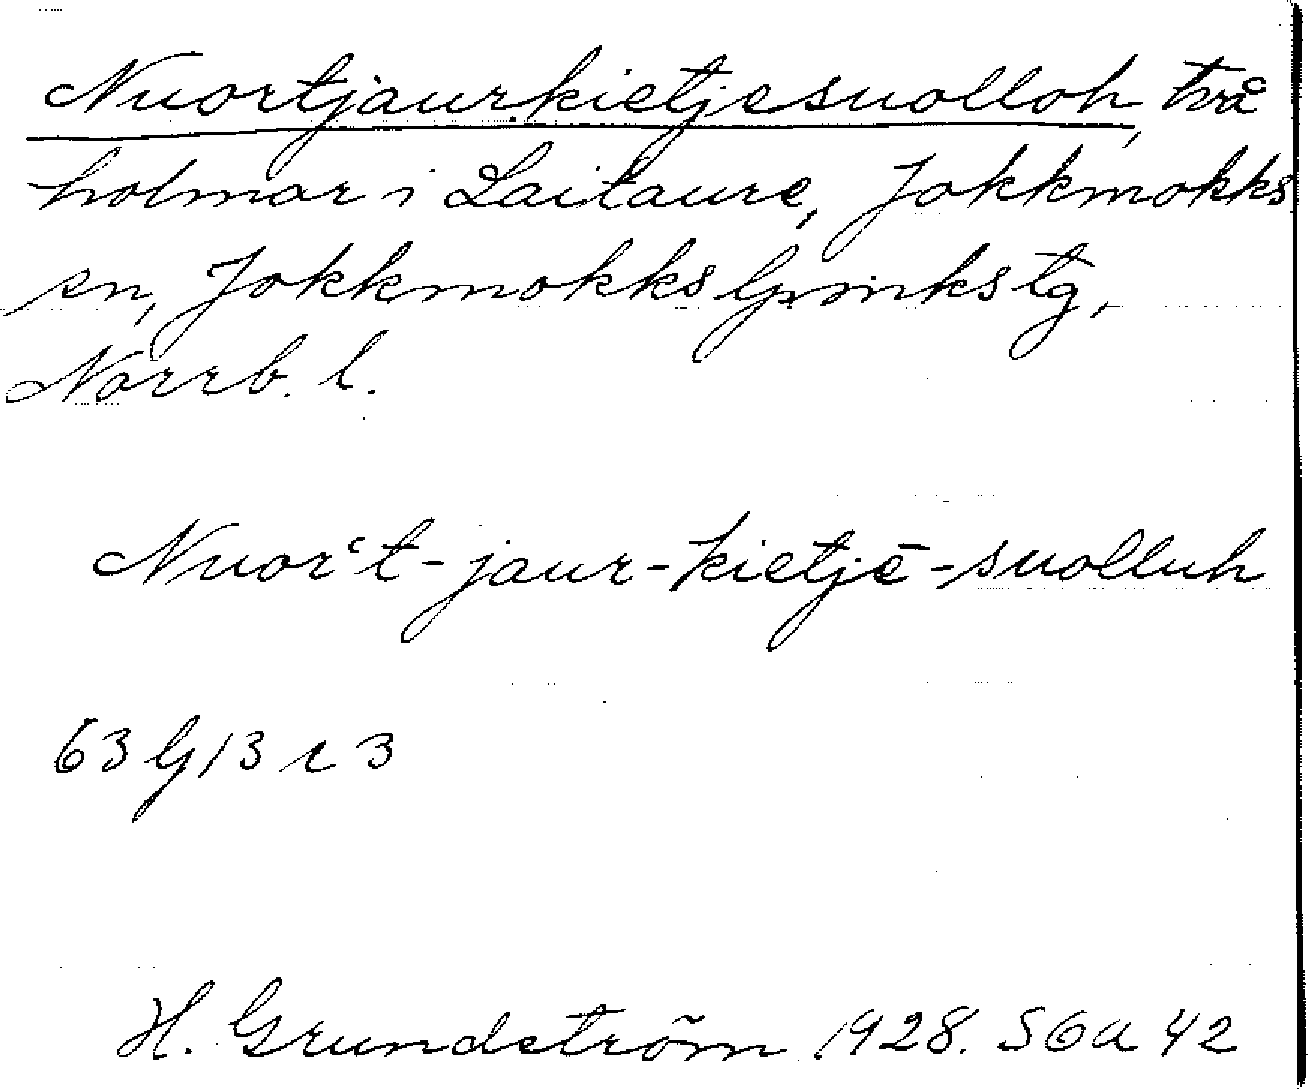 Nuortjaurkietjesuolloh, två
holmar i Laitaure, Jokkmokks
sn, Jokkmokks lpmks tg,
Norrb. l.
Nuorʿt-jaur-kietjē-suolluh
63 G 13 r 3
H. Grundström 1928. S6a 42